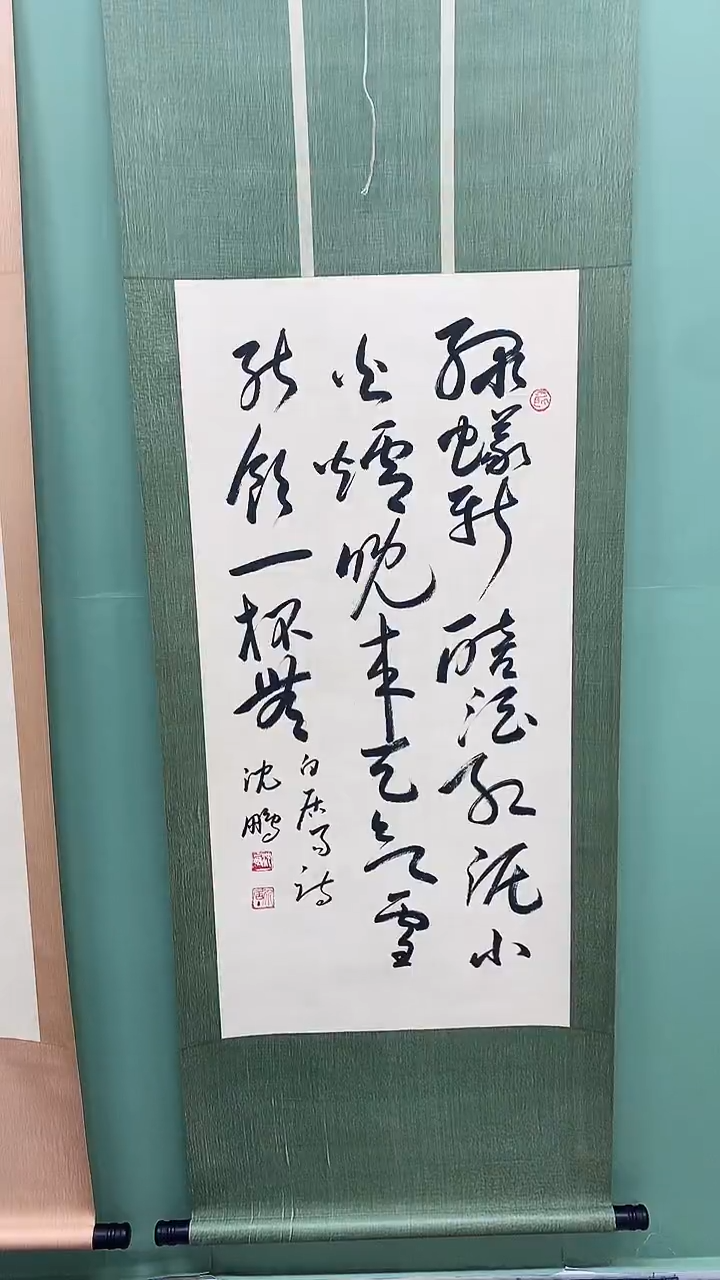 绿蟻新醅酒红泥小
火爐晚来天欲雪
能飲一杯無
白居易诗
沈鹏